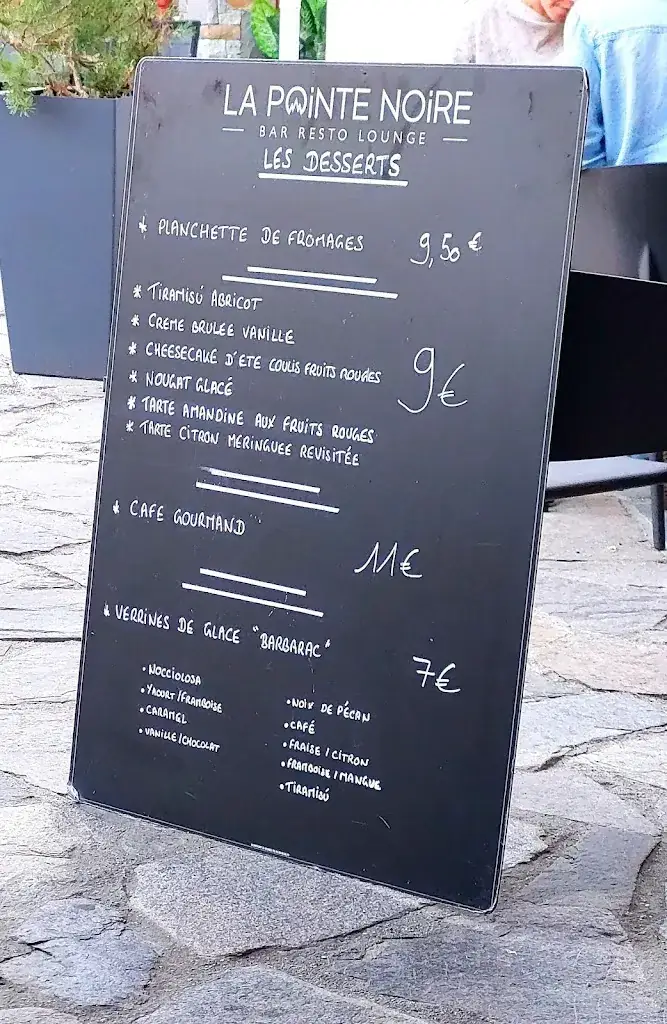 LA POiNTE NOiRE
BAR RESTO LOUNGE
LES DESSERTS
* PLANCHETTE DE FROMAGES 9,50 €
* TIRAMISÚ ABRICOT
* CREME BRULEE VANILLE
* CHEESECAKE D'ETE COULIS FRUITS ROUGES
9€
* NOUGAT GLACÉ
* TARTE AMANDINE AUX FRUITS ROUGES
* TARTE CITRON MERINGUEE REVISITÉE
* CAFE GOURMAND
11€
* VERRINES DE GLACE "BARBARAC"
7€
• NOCCIOLOSA
• YAOURT/FRAMBOISE
• CARAMEL
• VANILLE/CHOCOLAT
• NOIX DE PÉCAN
• CAFÉ
• FRAISE / CITRON
• FRAMBOISE / MANGUE
• TIRAMISÚ